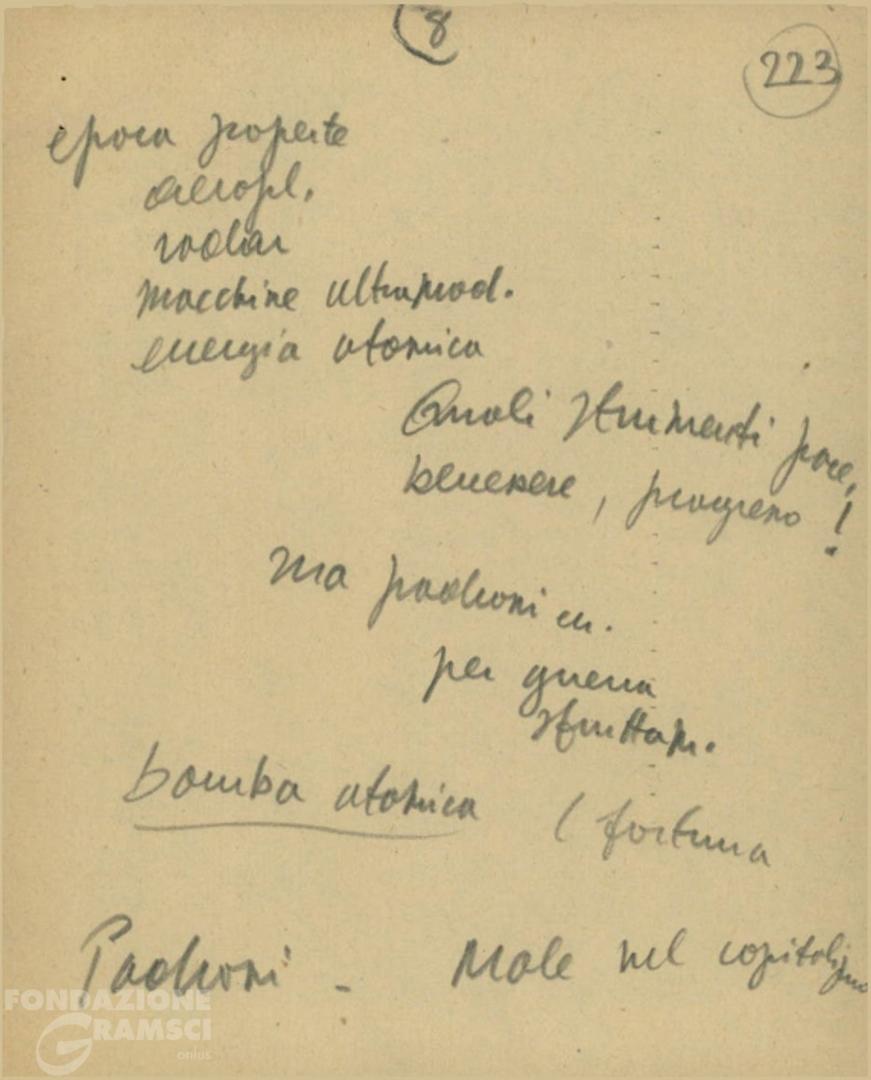 8
223
epoca scoperte
aeropl.
radar
macchine ultramod.
energia atomica
Quali strumenti pace,
benessere, progresso!
ma padroni
per guerra
sfruttam.
bomba atomica (fortuna
Padroni - Male nel capitalismo
FONDAZIONE
GRAMSCI
onlus